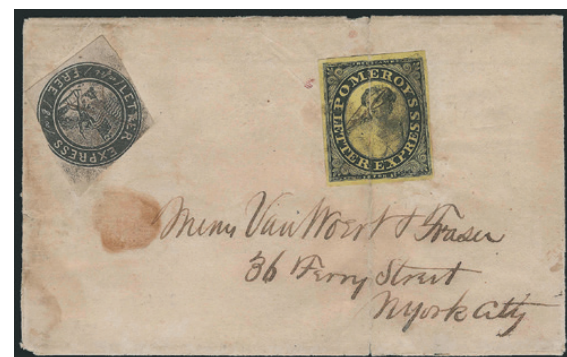 LETTER EXPRESS FREE
POMEROY'S LETTER EXPRESS
Van Woert & Fraser
36 Ferry Street
NYork City